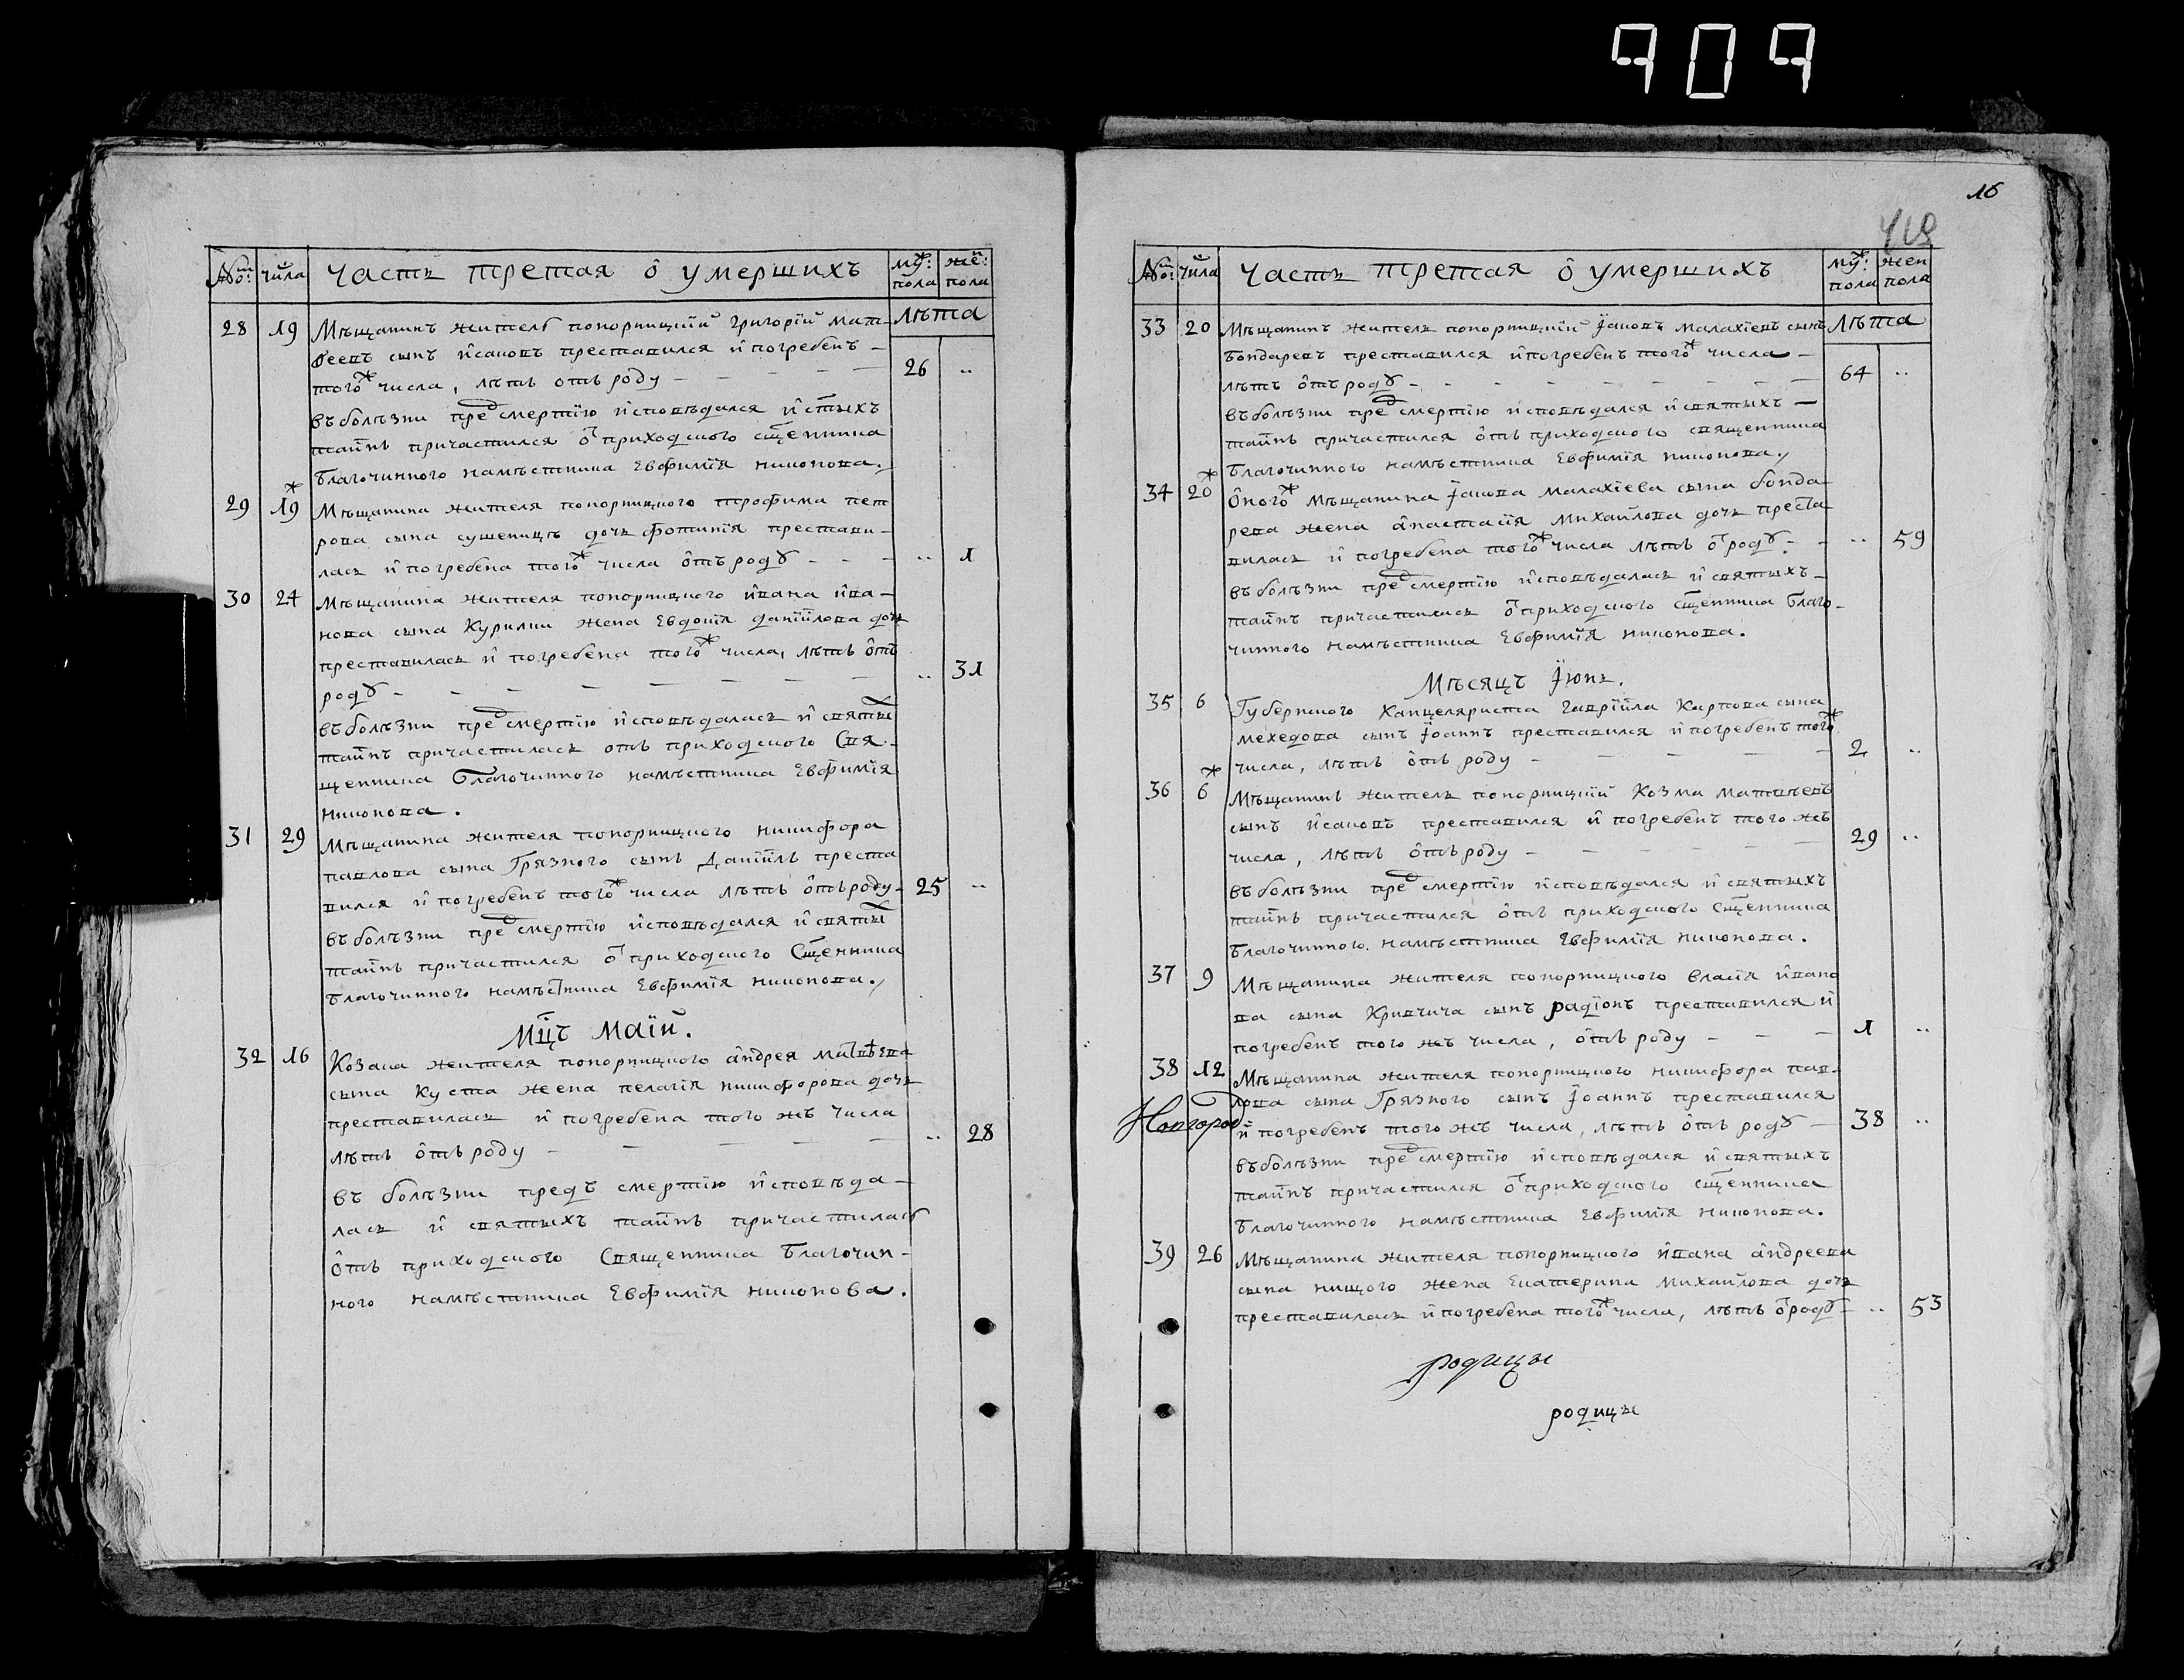 909
№: числа Часть третая о умершихъ муж: пола жен: пола
лѣта
28 19 Мѣщанинъ житель понорницкій Григорій Мат-
веевъ сынъ Исаковъ преставился и погребенъ –
того ж числа, лѣтъ отъ роду – – – – – 26 ..
въ болѣзни пред смертію исповѣдался и стыхъ
таинъ причастился от приходского сщенника
благочинного намѣстника Евфимія Никонова.
29 19 Мѣщанина жителя понорницкого Трофима Пет
рова сына Сушеницъ дочь Фотинія престави-
лась и погребена того ж числа отъ роду – – – .. 1
30 24 Мѣщанина жителя понорницкого Ивана Ива-
нова сына Курилки жена Евдокія Даніилова дочь
преставилась и погребена того ж числа, лѣтъ отъ
роду – – – – – – – – .. 31
въ болѣзни пред смертію исповѣдалась и святых
таинъ причастилась отъ приходского Свя-
щенника Благочинного намѣстника Евфимія
Никонова.
31 29 Мѣщанина жителя понорницкого Никифора
Павлова сына Грязного сынъ Даніилъ преста
вился и погребенъ того ж числа лѣтъ отъ роду – 25 ..
въ болѣзни пред смертію исповѣдался и святых
таинъ причастился от приходского Сщенника
благочинного намѣстника Евфимія Никонова.
Мцъ Маій.
32 16 Козака жителя понорницкого Андрея Матвѣева
сына Куста жена Пелагія Никифорова дочь
преставилась и погребена того жъ числа
лѣтъ отъ роду – – – – – .. 28
въ болѣзни предъ смертію исповѣда-
лась и святыхъ таинъ причастилась
отъ приходского Священника Благочин-
ного намѣстника Евфимія Никонова.
16
№: числа Часть третая о умершихъ муж: пола жен пола
лѣта
33 20 Мѣщанинъ житель понорницкій Іаковъ Малахіевъ сынъ
Бондаревъ преставился и погребенъ того ж числа –
лѣтъ отъ роду – – – – – – – – – 64 ..
въ болѣзни пред смертію исповѣдался и святыхъ –
таинъ причастился отъ приходского священника
Благочинного намѣстника Евфимія Никонова.
34 20 Оного ж мѣщанина Іакова Малахіева сына Бонда
рева жена Анастасія Михайлова дочь преста
вилась и погребена того ж числа лѣтъ от роду – – .. 59
въ болѣзни пред смертію исповѣдалась и святыхъ –
таинъ причастилась от приходского Сщенника Благо-
чинного намѣстника Евфимія Никонова.
Мѣсяцъ Іюнь.
35 6 Губернского Канцеляриста Гавріила Карпова сына
Мехедова сынъ Іоаннъ преставился и погребенъ того ж
числа, лѣтъ отъ роду – – – – 2 ..
36 6 Мѣщанинъ житель понорницкій Козма Матвѣевъ
сынъ Исаковъ преставился и погребенъ того жъ
числа, лѣтъ отъ роду – – – – – – 29 ..
въ болѣзни пред смертію исповѣдался и святыхъ
таинъ причастился отъ приходского Сщенника
Благочинного намѣстника Евфимія Никонова.
37 9 Мѣщанина жителя понорницкого Власія Ивано
ва сына Кривчича сынъ Радіонъ преставился и
погребенъ того жъ числа, отъ роду – – – 1 ..
38 12 Мѣщанина жителя понорницкого Никифора Пав-
лова сына Грязного сынъ Іоаннъ преставился
Новгород и погребенъ того жъ числа, лѣтъ отъ роду – 38 ..
въ болѣзни пред смертію исповѣдался и святыхъ
таинъ причастился от приходского Сщенника
Благочинного намѣстника Евфимія Никонова.
39 26 Мѣщанина жителя понорницкого Ивана Андреева
сына Нищого жена Екатерина Михайлова дочь
преставилась и погребена того ж числа, лѣтъ от роду – .. 53
родицы
родицы